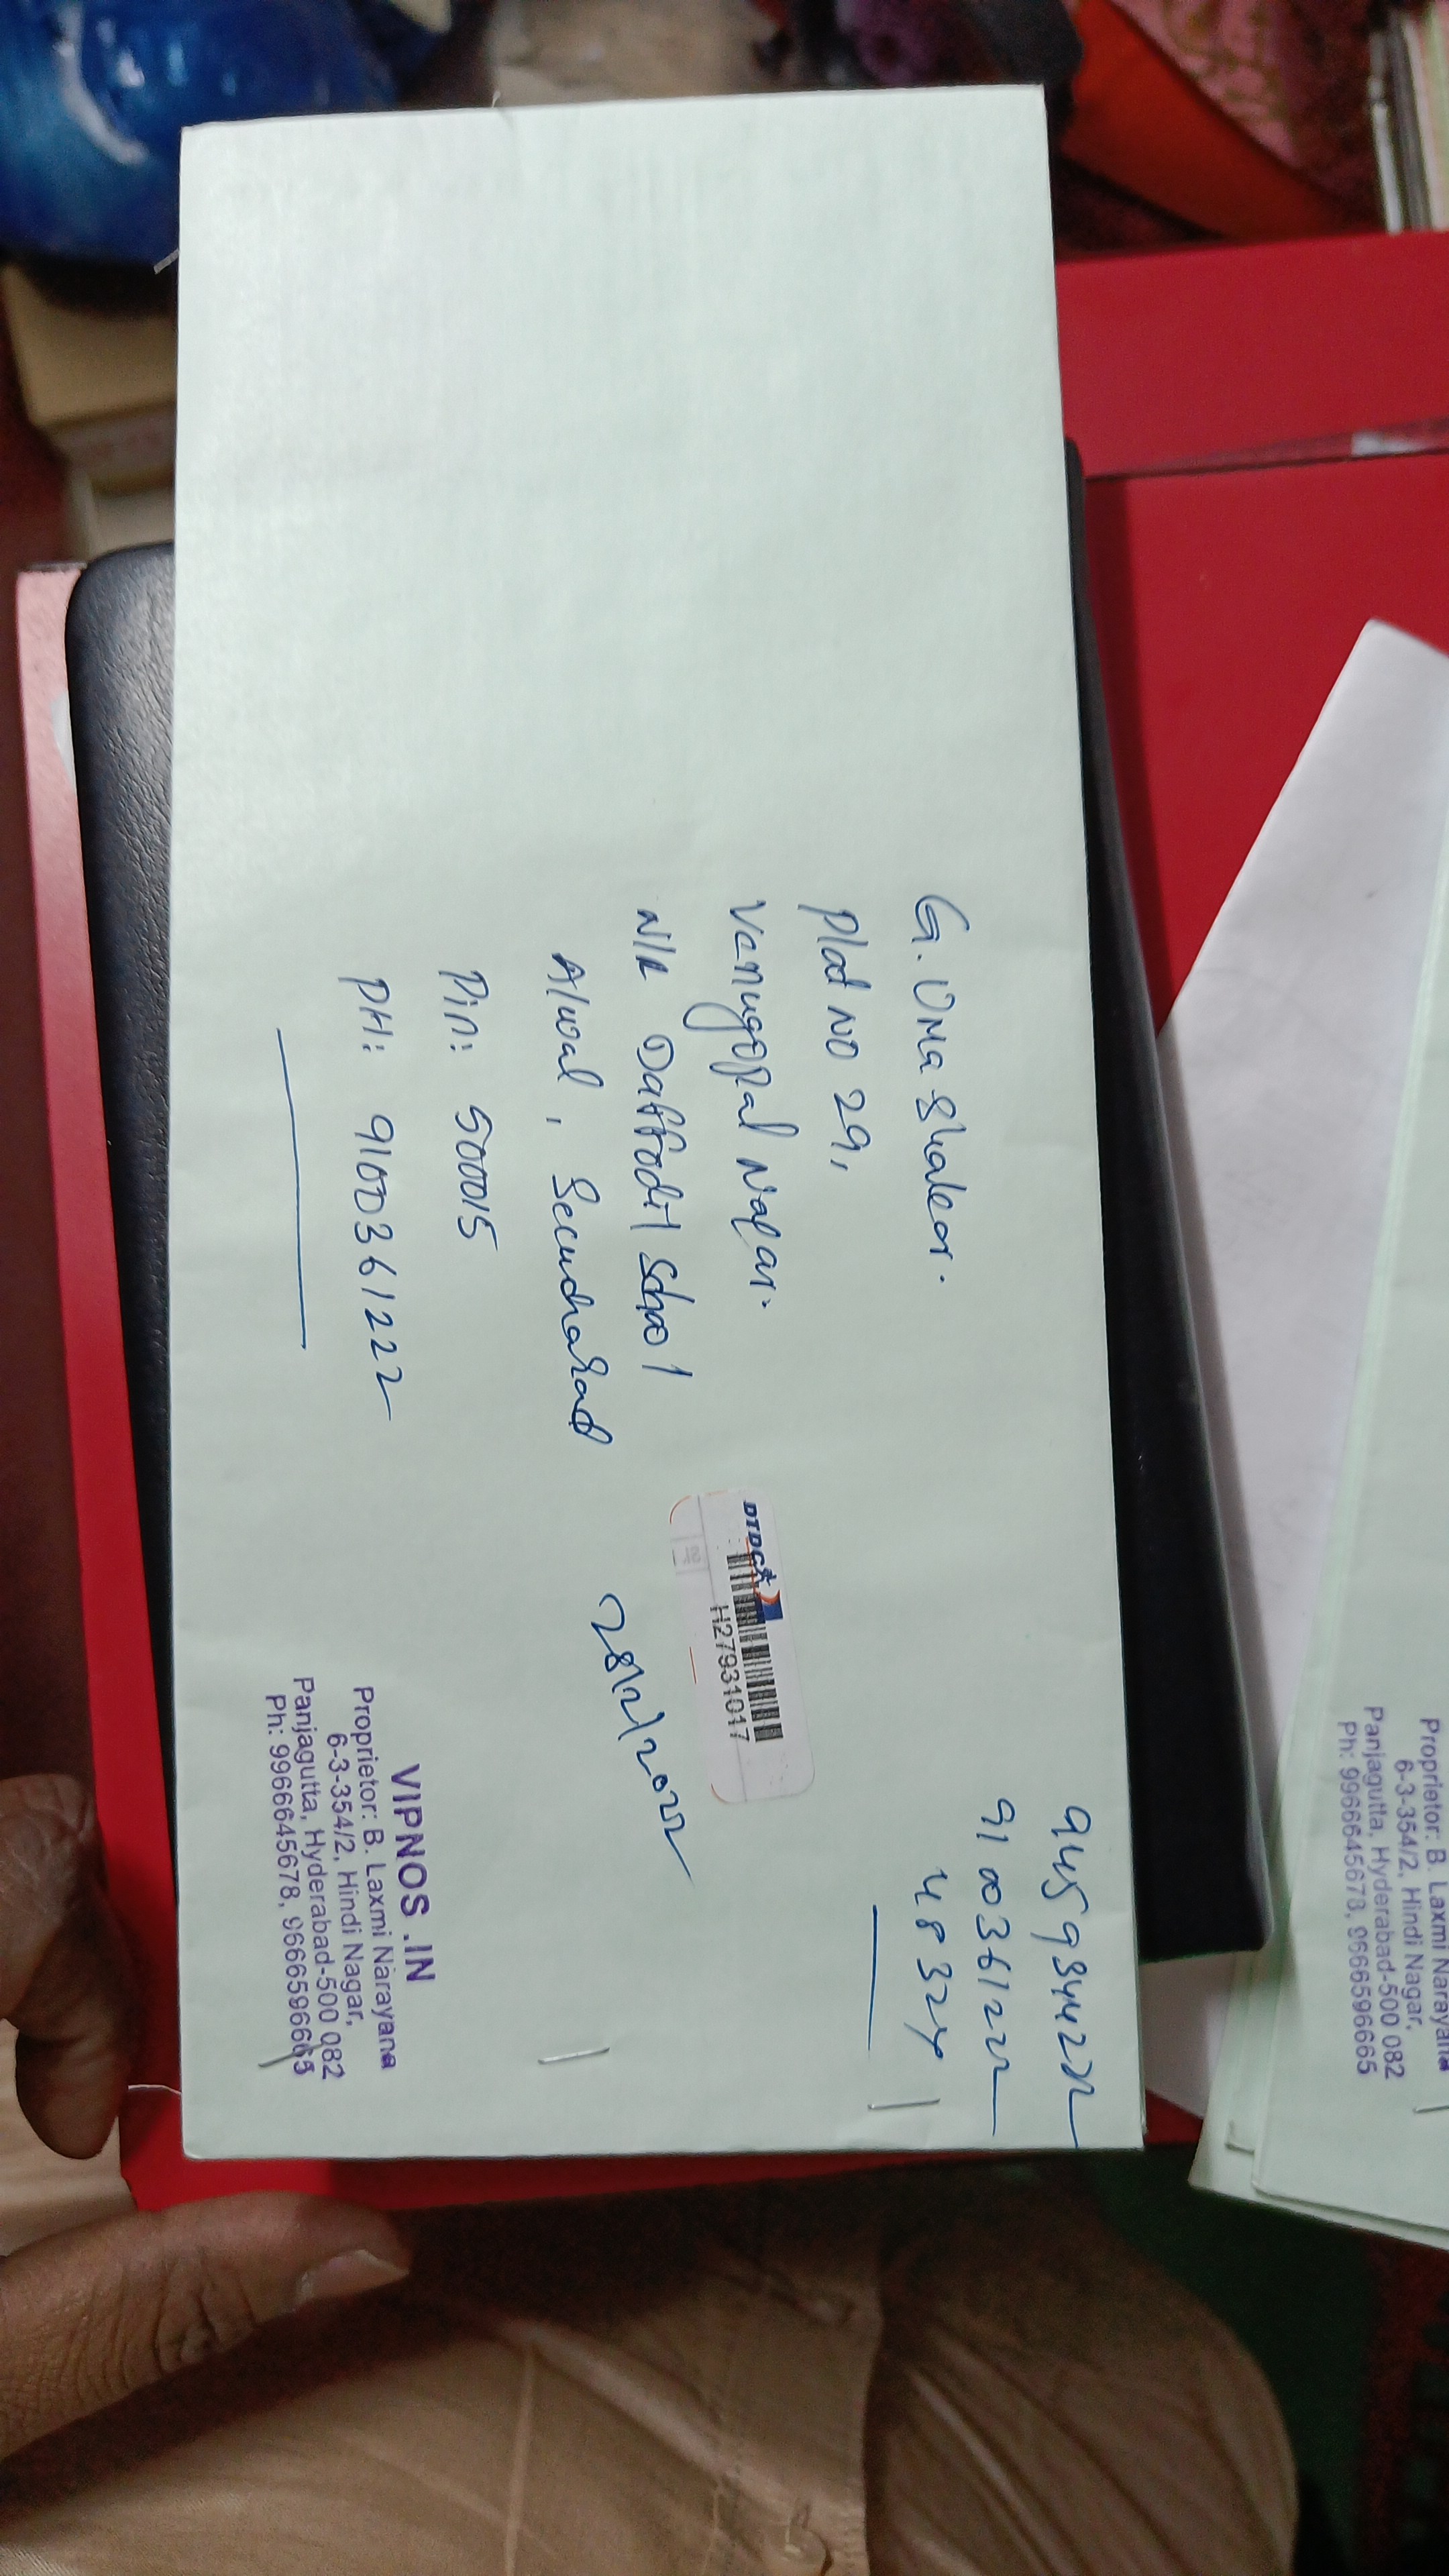 9459344222
9100361222
48324
G. Uma Shaker.
Plot NO 29,
Venugopal Nagar.
N/R Daffodil School
Alwal, Secundrabad
Pin: 500015
PH: 9100361222
DTDC
H27931017
28/12/2022
VIPNOS .IN
Proprietor: B. Laxmi Narayana
6-3-354/2, Hindi Nagar,
Panjagutta, Hyderabad-500 082
Ph: 9966645678, 9666596665
Proprietor: B. Laxmi Narayana
6-3-354/2, Hindi Nagar,
Panjagutta, Hyderabad-500 082
Ph: 9966645678, 9666596665